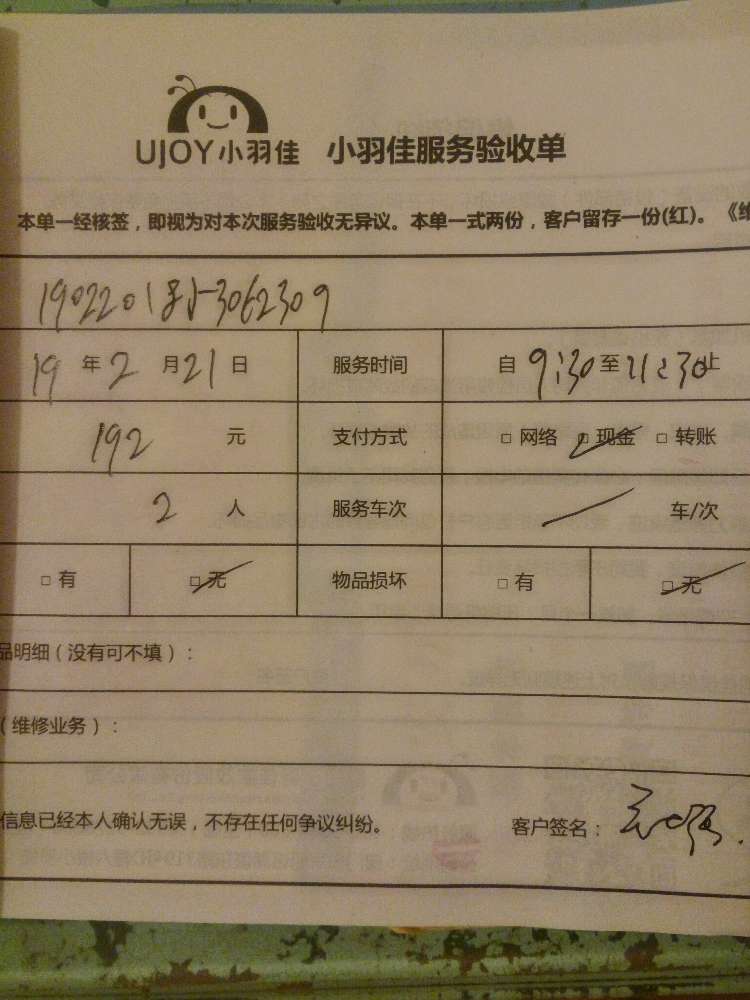 UJOY小羽佳 小羽佳服务验收单
本单一经核签，即视为对本次服务验收无异议。本单一式两份，客户留存一份(红)。《维
19 年 2 月 21 日 服务时间 自 9:30 至 11:30 止
192 元 支付方式 □ 网络 □ 现金 □ 转账
2 人 服务车次 车/次
□ 有 □ 无 物品损坏 □ 有 □ 无
品明细（没有可不填）：
（维修业务）：
信息已经本人确认无误，不存在任何争议纠纷。 客户签名：